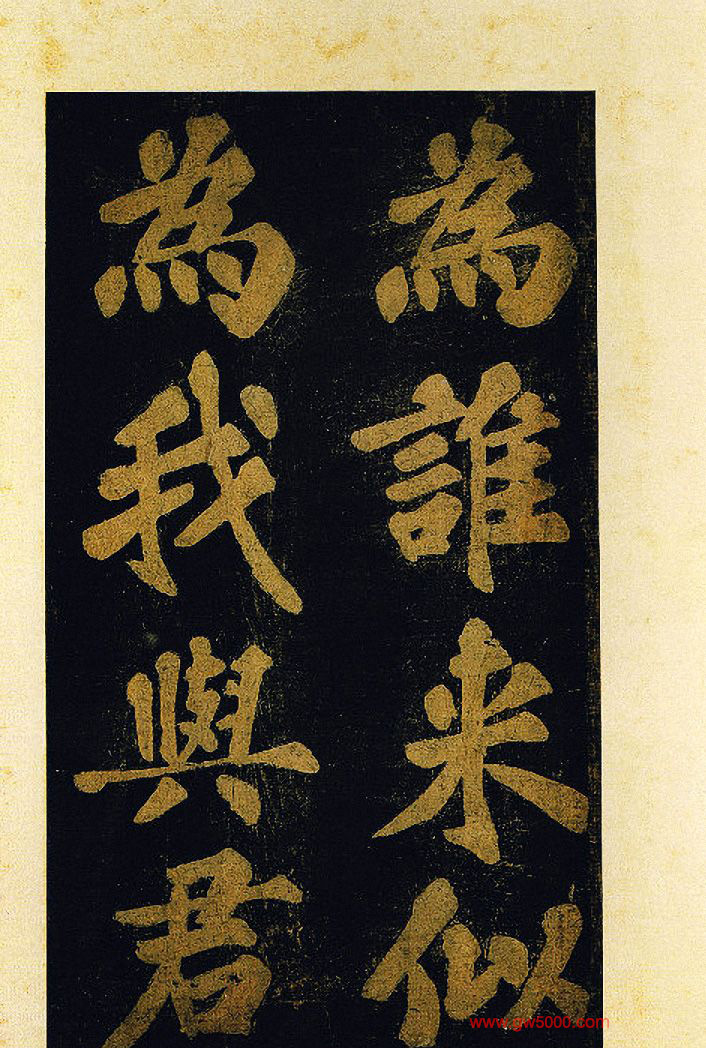 為誰來似
為我與君
www.gw5000.com